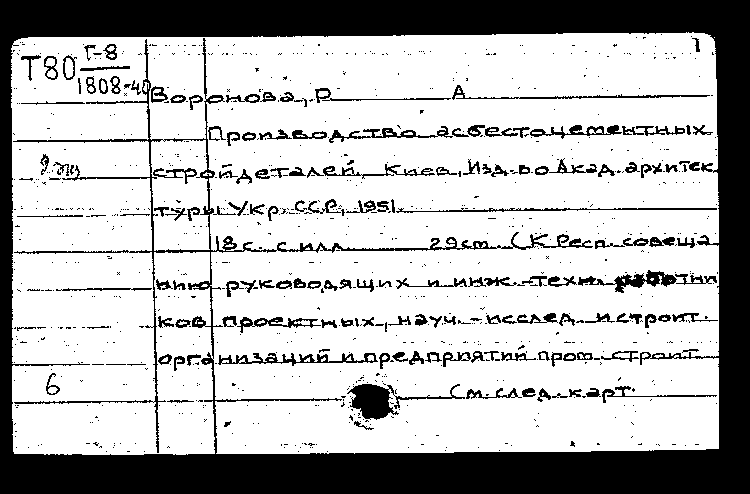 1
Т80 Г-8
1808-40
Воронова, Р А
Производство асбестоцементных
2 экз
стройдеталей. Киев, Изд-во Акад. архитек
туры Укр. ССР, 1951.
18 с. с илл. 29 cm. (К Респ. совеща
нию руководящих и инж.-техн. работни
ков проектных, науч.-исслед. и строит.
организаций и предприятий пром. строит.
6
См. след. карт.